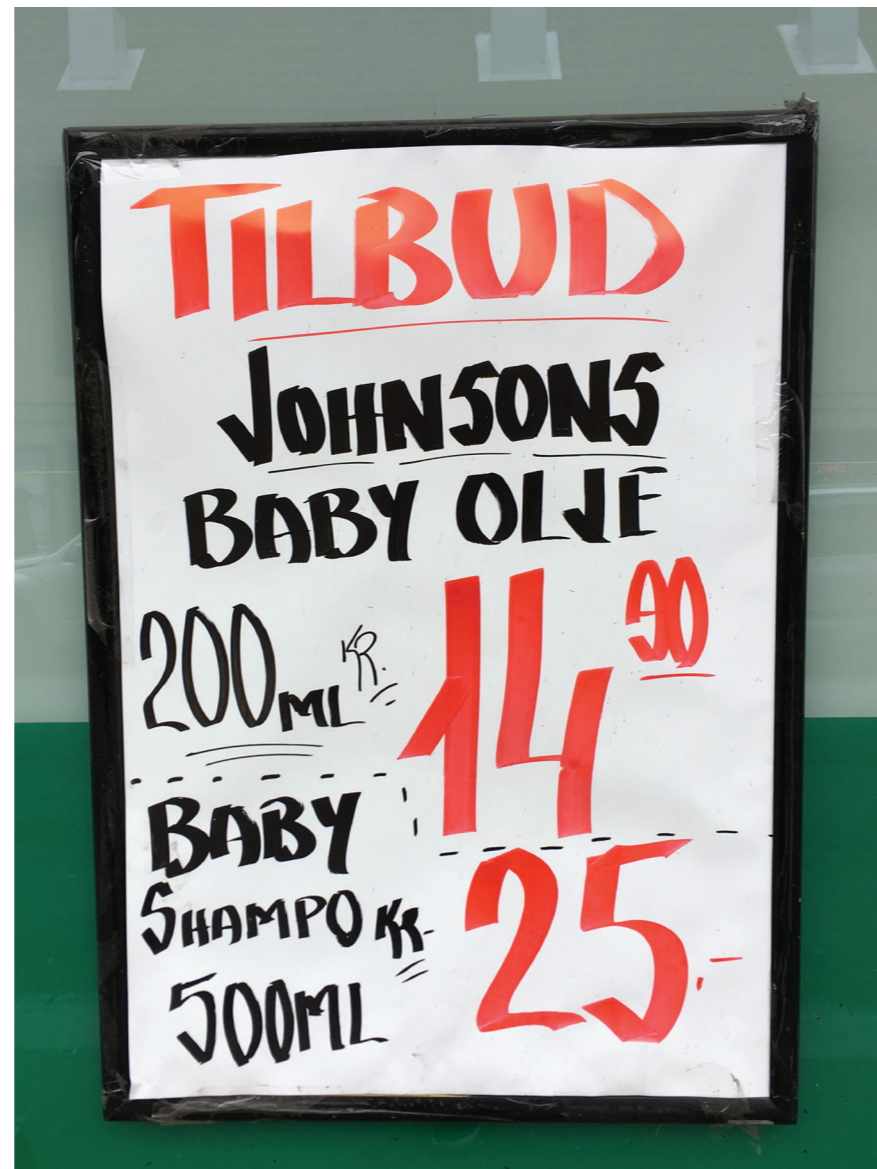 TILBUD
JOHNSONS
BABY OLJE
200 ML KR. 14 90
BABY
SHAMPO KR-
500ML
25.-